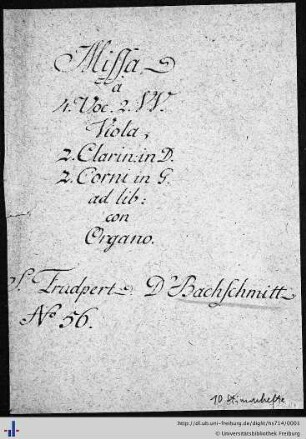 Missa
a
4. Voc. 2. VV.
Viola,
2. Clarin: in D.
2. Corni in G.
ad lib:
con
Organo.
S. Trudpert. D. Bachschmitt
No 56.
10 Stimmhefte
http://dl.ub.uni-freiburg.de/diglit/hs714/0001
© Universitätsbibliothek Freiburg